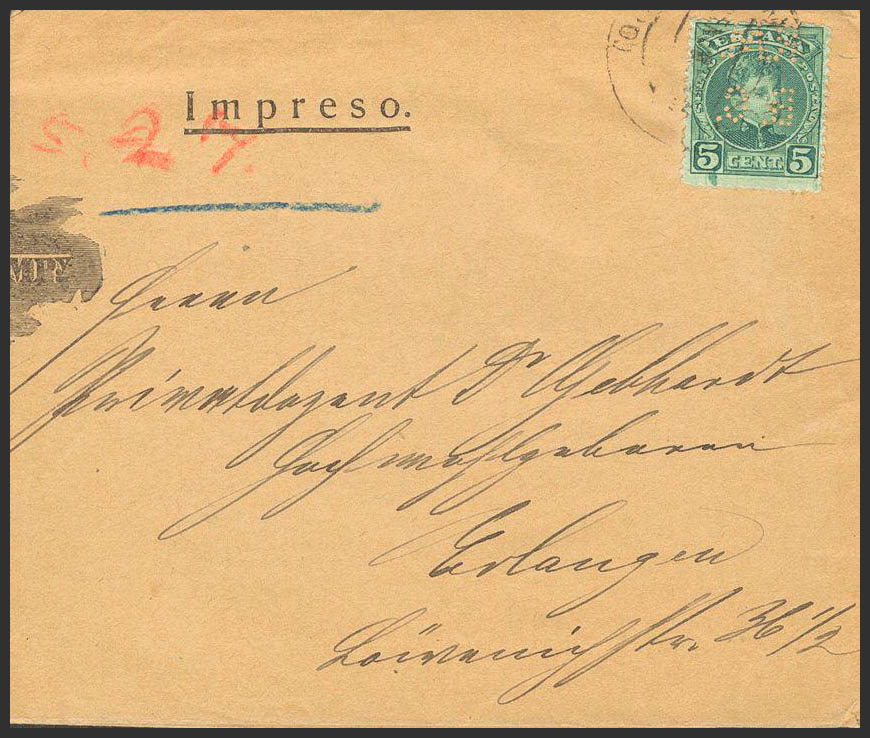 Impreso.
ESPAÑA
5 CENT. 5
5. 2
Herrn
Privatdozent Dr Gebhardt
Hochwohlgeboren
Erlangen
Löwenichstr. 36 1/2